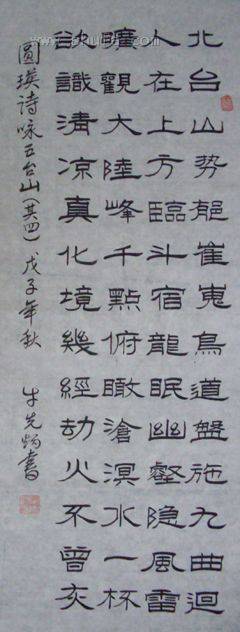 北台山势郁崔嵬鳥道盤施九曲迴
人在上方臨斗宿龍眠幽壑隐風雷
曠觀大陸峰千點俯瞰滄溟水一杯
欲識清凉真化境幾經劫火不曾灰
圓瑛詩咏五台山(其四) 戊子年秋 牛先炳書